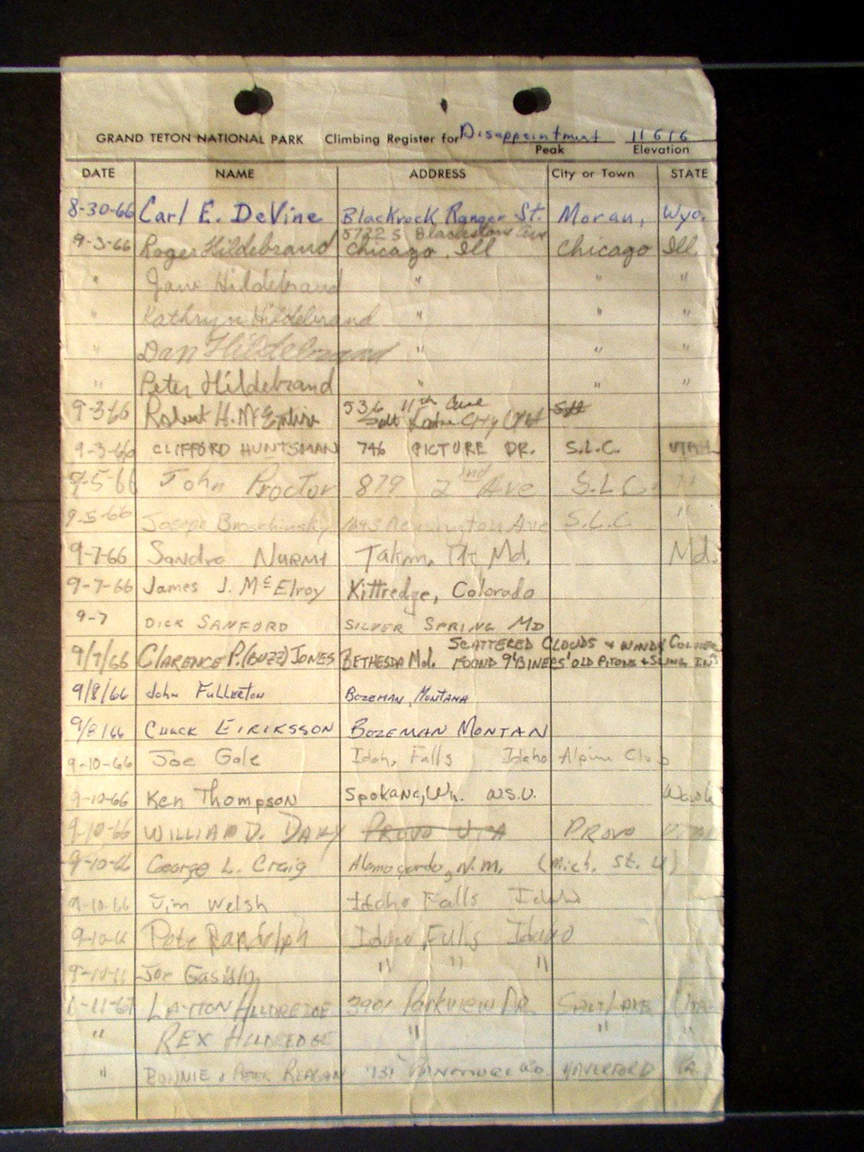 GRAND TETON NATIONAL PARK Climbing Register for Disappointment 11616
Peak Elevation
DATE NAME ADDRESS City or Town STATE
8-30-66 Carl E. DeVine Blackrock Ranger St. Moran, Wyo.
5722 S Blackstone Ave
9-3-66 Roger Hildebrand Chicago, Ill Chicago Ill.
" Jane Hildebrand " " "
" Kathryn Hildebrand " " "
" Dan Hildebrand " " "
" Peter Hildebrand " " "
9-3-66 Robert H. McEntire 536 11th Ave
Salt Lake City
9-3-66 CLIFFORD HUNTSMAN 746 PICTURE DR. S.L.C. UTAH
9-5-66 John Proctor 879 2nd Ave S.L.C. "
9-5-66 Joseph Kensington Ave S.L.C. "
9-7-66 Sandra NURMI Takoma, Pk Md. Md.
9-7-66 James J. McElroy Kittredge, Colorado
9-7 DICK SANFORD SILVER SPRING MD
SCATTERED CLOUDS + WINDY
9/7/66 CLARENCE P. (BUZZ) JONES BETHESDA Md. FOUND 9 'BINERS' OLD PITONS + SLING
9/8/66 John Fullerton BOZEMAN, MONTANA
9/8/66 CHUCK EIRIKSSON BOZEMAN MONTAN
9-10-66 Joe Gale Idaho Falls Idaho Alpine Club
9-10-66 Ken Thompson Spokane, Wn. W.S.U. Wash
9-10-66 WILLIAM D. PROVO UTA PROVO
9-10-66 George L. Craig Alamogordo, N.M. (Mich. St. U)
9-10-66 Jim Welsh Idaho Falls Idaho
9-10-66 Pete Randolph Idaho Falls Idaho
Joe " " "
LAMON HILDREDGE Parkview DR. SALT LAKE
" REX " " "
" BONNIE & PETER REAGAN HAVERFORD PA.